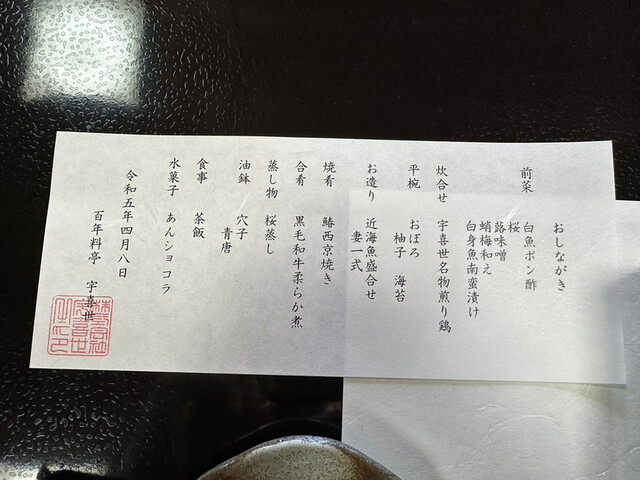 おしながき
前菜
白魚ポン酢
桜
蕗味噌
蛸梅和え
白身魚南蛮漬け
炊合せ 宇喜世名物煎り鶏
平椀 おぼろ
柚子 海苔
お造り 近海魚盛合せ
妻一式
焼肴 鰆西京焼き
合肴 黒毛和牛柔らか煮
蒸し物 桜蒸し
油鉢 穴子
青唐
食事 茶飯
水菓子 あんショコラ
令和五年四月八日
百年料亭 宇喜世